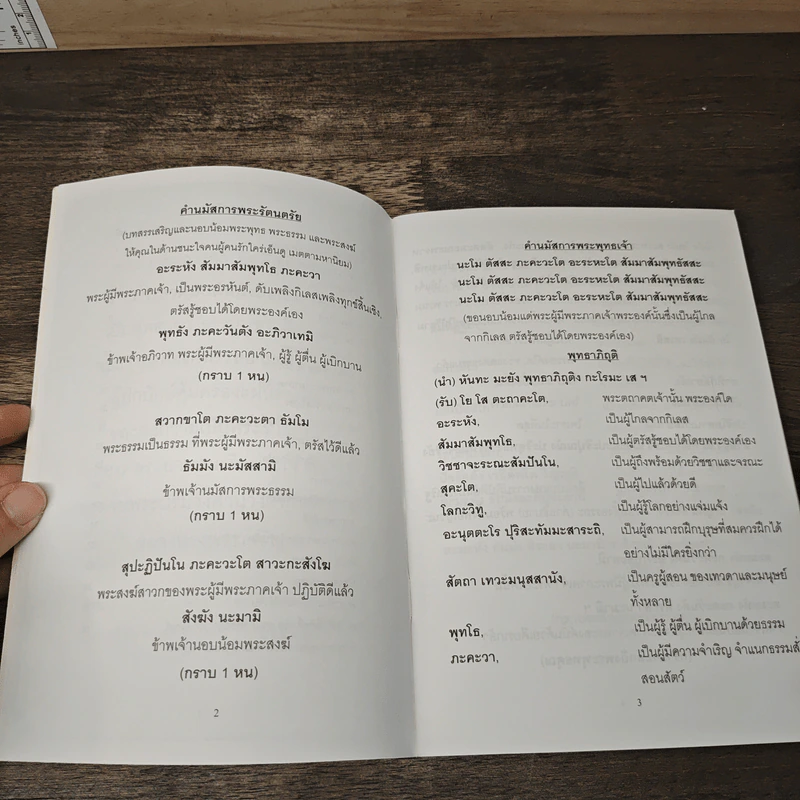 คำนมัสการพระรัตนตรัย
(บทสรรเสริญและนอบน้อมพระพุทธ พระธรรม และพระสงฆ์
ให้คุณในด้านชนะใจคนผู้คนรักใคร่เอ็นดู เมตตามหานิยม)
อะระหัง สัมมาสัมพุทโธ ภะคะวา
พระผู้มีพระภาคเจ้า, เป็นพระอรหันต์, ดับเพลิงกิเลสเพลิงทุกข์สิ้นเชิง,
ตรัสรู้ชอบได้โดยพระองค์เอง
พุทธัง ภะคะวันตัง อะภิวาเทมิ
ข้าพเจ้าอภิวาท พระผู้มีพระภาคเจ้า, ผู้รู้ ผู้ตื่น ผู้เบิกบาน
(กราบ 1 หน)
สวากขาโต ภะคะวะตา ธัมโม
พระธรรมเป็นธรรม ที่พระผู้มีพระภาคเจ้า, ตรัสไว้ดีแล้ว
ธัมมัง นะมัสสามิ
ข้าพเจ้านมัสการพระธรรม
(กราบ 1 หน)
สุปะฏิปันโน ภะคะวะโต สาวะกะสังโฆ
พระสงฆ์สาวกของพระผู้มีพระภาคเจ้า ปฏิบัติดีแล้ว
สังฆัง นะมามิ
ข้าพเจ้านอบน้อมพระสงฆ์
(กราบ 1 หน)
2
คำนมัสการพระพุทธเจ้า
นะโม ตัสสะ ภะคะวะโต อะระหะโต สัมมาสัมพุทธัสสะ
นะโม ตัสสะ ภะคะวะโต อะระหะโต สัมมาสัมพุทธัสสะ
นะโม ตัสสะ ภะคะวะโต อะระหะโต สัมมาสัมพุทธัสสะ
(ขอนอบน้อมแด่พระผู้มีพระภาคเจ้าพระองค์นั้นซึ่งเป็นผู้ไกล
จากกิเลส ตรัสรู้ชอบได้โดยพระองค์เอง)
พุทธาภิถุติ
(นำ) หันทะ มะยัง พุทธาภิถุติง กะโรมะ เส ฯ
(รับ) โย โส ตะถาคะโต, พระตถาคตเจ้านั้น พระองค์ใด
อะระหัง, เป็นผู้ไกลจากกิเลส
สัมมาสัมพุทโธ, เป็นผู้ตรัสรู้ชอบได้โดยพระองค์เอง
วิชชาจะระณะสัมปันโน, เป็นผู้ถึงพร้อมด้วยวิชชาและจรณะ
สุคะโต, เป็นผู้ไปแล้วด้วยดี
โลกะวิทู, เป็นผู้รู้โลกอย่างแจ่มแจ้ง
อะนุตตะโร ปุริสะทัมมะสาระถิ, เป็นผู้สามารถฝึกบุรุษที่สมควรฝึกได้
อย่างไม่มีใครยิ่งกว่า
สัตถา เทวะมะนุสสานัง, เป็นครูผู้สอน ของเทวดาและมนุษย์
ทั้งหลาย
พุทโธ, เป็นผู้รู้ ผู้ตื่น ผู้เบิกบานด้วยธรรม
ภะคะวา, เป็นผู้มีความจำเริญ จำแนกธรรมสั่
สอนสัตว์
3
inches
1
2